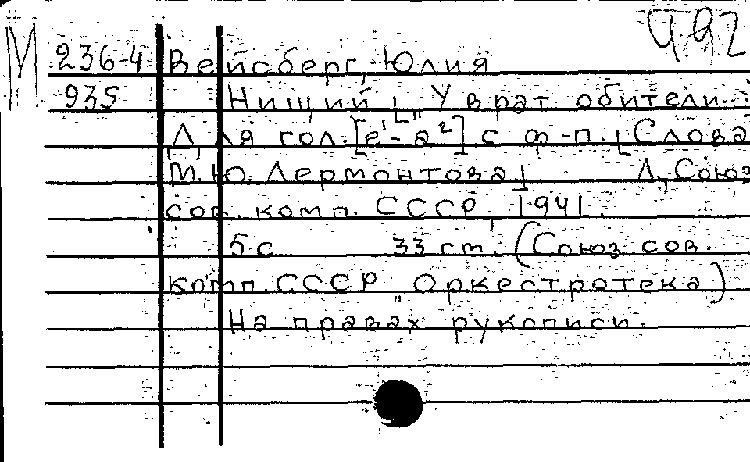 М 992
236-4 Вейсберг, Юлия
935 Нищий. „У врат обители..."
Для гол. [e¹-a²] с ф-п. [Слова
М. Ю. Лермонтова] Л., Союз
сов. комп. СССР, 1941.
5 с. 33 cm. (Союз сов.
комп. СССР. Оркестротека)
На правах рукописи.